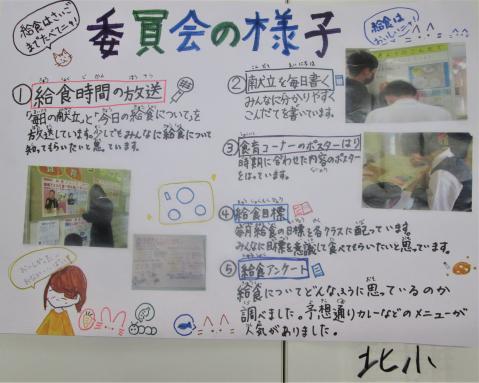 委員会の様子
給食はさいご
までたべてニャ!
給食は
おいしいニャ!
① 給食時間の放送
「毎日の献立」と「今日の給食について」を
放送しています。少しでもみんなに給食について
知ってもらいたいと思っています。
② 献立を毎日書く
みんなに分かりやすく
こんだてを書いています。
③ 食育コーナーのポスターはり
時期に合わせた内容のポスター
をはっています。
④ 給食目標
毎月給食の目標を各クラスに配っています。
みんなに目標を意識して食べてもらいたいと思っています。
⑤ 給食アンケート
給食についてどんなふうに思っているのか
調べました。予想通りカレーなどのメニューが
人気がありました。
北小